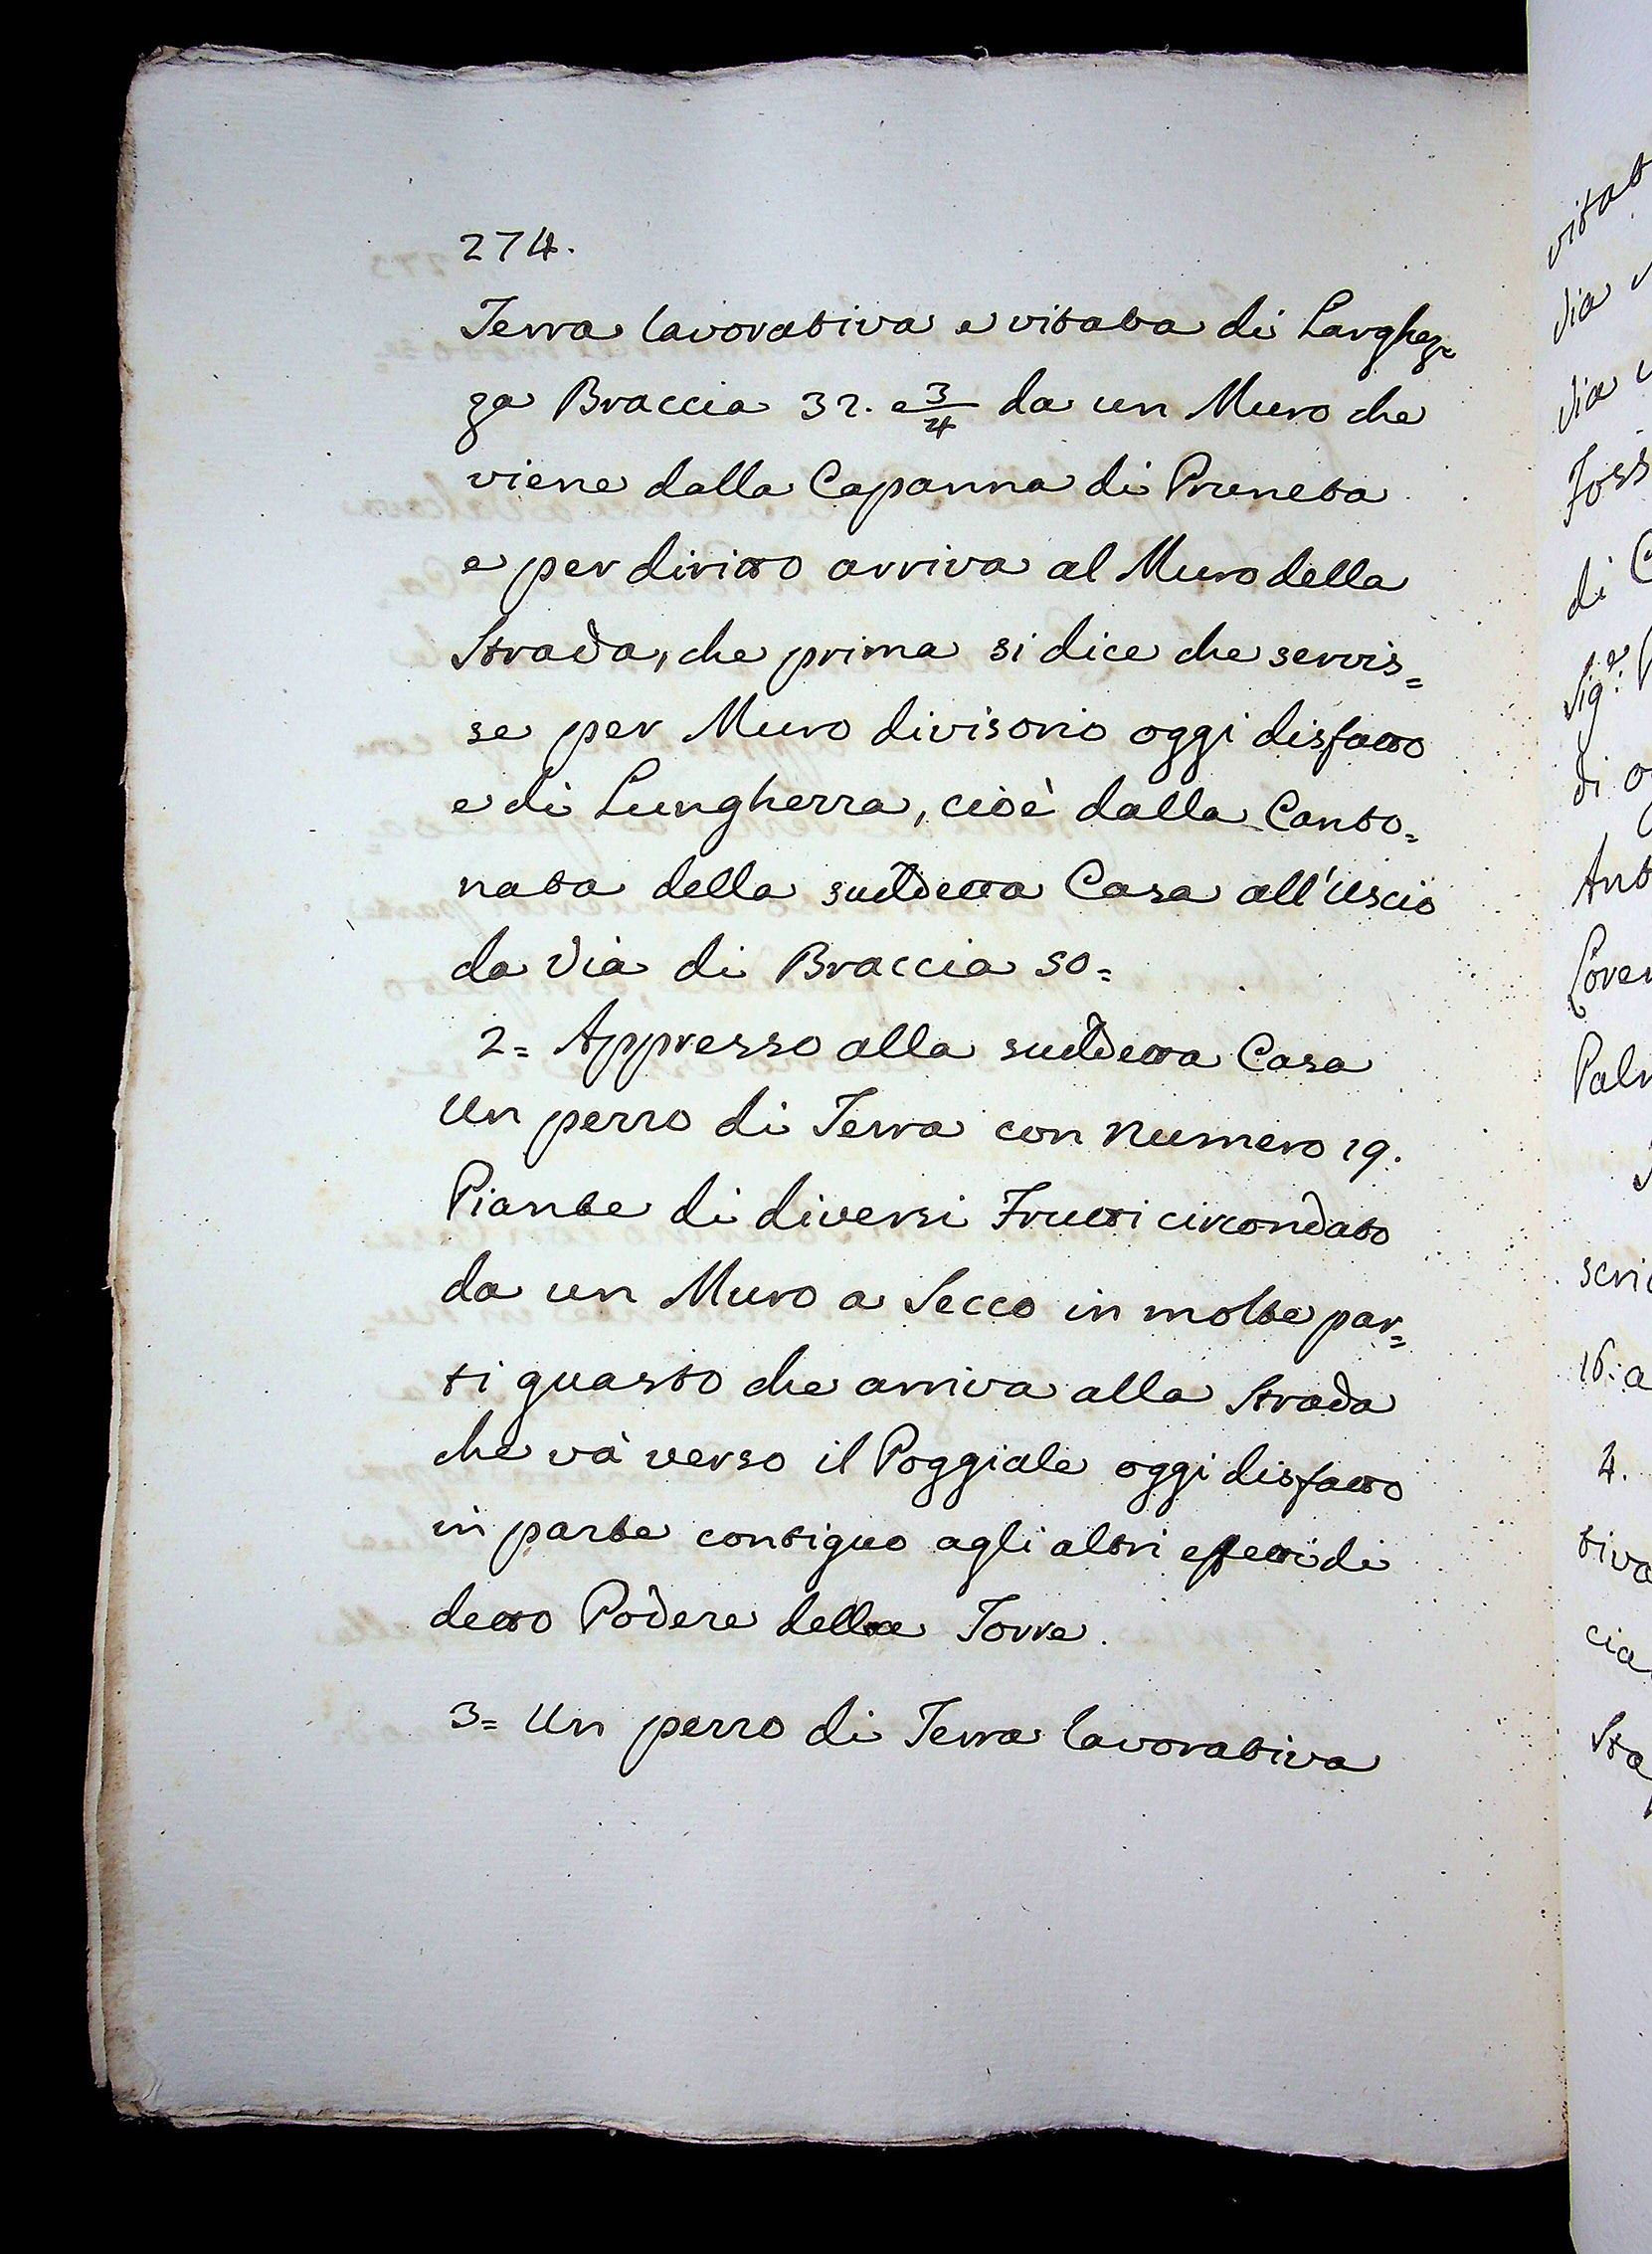 274.
Terra lavorativa e vitata di Larghez=
za Braccia 32. e 3/4 da un Muro che
viene dalla Capanna di Pruneta
e per diritto arriva al Muro della
Strada, che prima si dice che servis=
se per Muro divisorio oggi disfatto
e di Lunghezza, cioè dalla Canto=
nata della suddetta Casa all'Uscio
da Via di Braccia 50=
2= Appresso alla suddetta Casa
Un pezzo di Terra con Numero 19.
Piante di diversi Frutti circondato
da un Muro a Secco in molte par=
ti guasto che arriva alla Strada
che và verso il Poggiale oggi disfatto
in parte contiguo agli altri effetti di
detto Podere delle Torre.
3= Un pezzo di Terra lavorativa
via
via
di
di
Palm
16: a
4.
tiva
cia